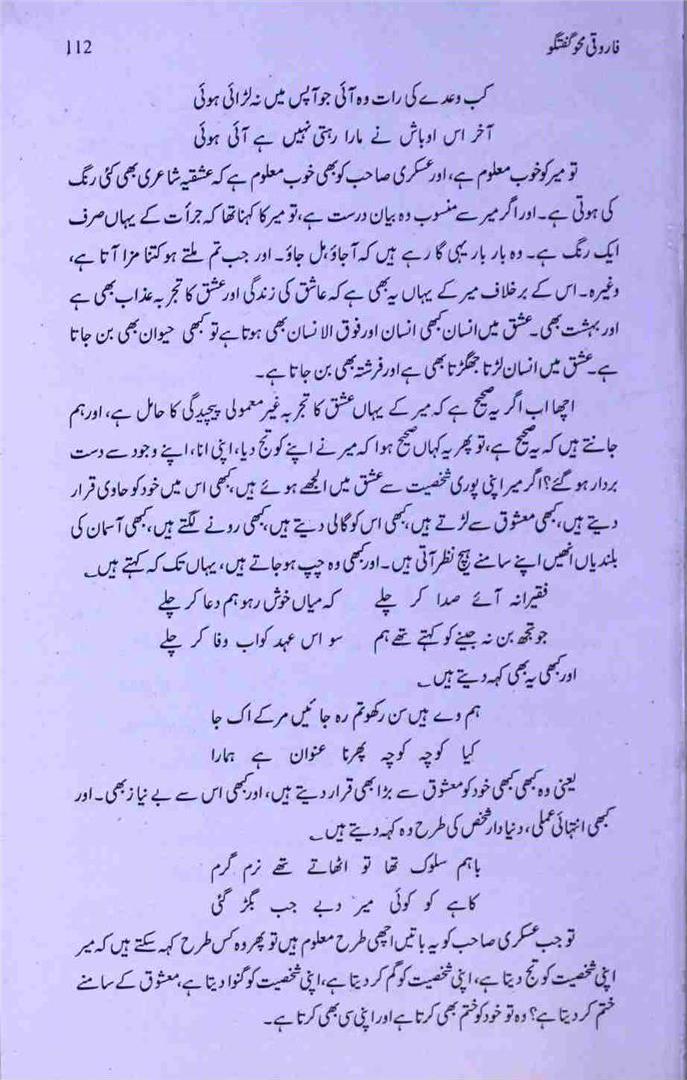 فاروقی محو گفتگو 112
کب وعدے کی رات وہ آئی جو آپس میں نہ لڑائی ہوئی
آخر اس اوباش نے مارا رہتی نہیں ہے آئی ہوئی
تو میر کو خوب معلوم ہے، اور عسکری صاحب کو بھی خوب معلوم ہے کہ عشقیہ شاعری بھی کئی رنگ
کی ہوتی ہے۔ اور اگر میر سے منسوب وہ بیان درست ہے، تو میر کا کہنا تھا کہ جرأت کے یہاں صرف
ایک رنگ ہے۔ وہ بار بار یہی گا رہے ہیں کہ آجاؤ، مل جاؤ۔ اور جب تم ملتے ہو کتنا مزا آتا ہے،
وغیرہ۔ اس کے برخلاف میر کے یہاں یہ بھی ہے کہ عاشق کی زندگی اور عشق کا تجربہ عذاب بھی ہے
اور بہشت بھی۔ عشق میں انسان کبھی انسان اور فوق الانسان بھی ہوتا ہے تو کبھی حیوان بھی بن جاتا
ہے۔ عشق میں انسان لڑتا جھگڑتا بھی ہے اور فرشتہ بھی بن جاتا ہے۔
اچھا اب اگر یہ صحیح ہے کہ میر کے یہاں عشق کا تجربہ غیر معمولی پیچیدگی کا حامل ہے، اور ہم
جانتے ہیں کہ یہ صحیح ہے، تو پھر یہ کہاں صحیح ہوا کہ میر نے اپنے کو تج دیا، اپنی انا، اپنے وجود سے دست
بردار ہو گئے؟ اگر میر اپنی پوری شخصیت سے عشق میں الجھے ہوئے ہیں، کبھی اس میں خود کو حاوی قرار
دیتے ہیں، کبھی معشوق سے لڑتے ہیں، کبھی اس کو گالی دیتے ہیں، کبھی رونے لگتے ہیں، کبھی آسمان کی
بلندیاں انھیں اپنے سامنے ہیچ نظر آتی ہیں۔ اور کبھی وہ چپ ہو جاتے ہیں، یہاں تک کہ کہتے ہیں ؎
فقیرانہ آئے صدا کر چلے کہ میاں خوش رہو ہم دعا کر چلے
جو تجھ بن نہ جینے کو کہتے تھے ہم سو اس عہد کو اب وفا کر چلے
اور کبھی یہ بھی کہہ دیتے ہیں ؎
ہم وے ہیں سن رکھو تم رہ جائیں مر کے اک جا
کیا کوچہ کوچہ پھرنا عنوان ہے ہمارا
یعنی وہ کبھی کبھی خود کو معشوق سے بڑا بھی قرار دیتے ہیں، اور کبھی اس سے بے نیاز بھی۔ اور
کبھی انتہائی عملی، دنیا دار شخص کی طرح وہ کہہ دیتے ہیں ؎
باہم سلوک تھا تو اٹھاتے تھے نرم گرم
کاہے کو کوئی میر دبے جب بگڑ گئی
تو جب عسکری صاحب کو یہ باتیں اچھی طرح معلوم ہیں تو پھر وہ کس طرح کہہ سکتے ہیں کہ میر
اپنی شخصیت کو تج دیتا ہے، اپنی شخصیت کو گم کر دیتا ہے، اپنی شخصیت کو گنوا دیتا ہے، معشوق کے سامنے
ختم کر دیتا ہے؟ وہ تو خود کو ختم بھی کرتا ہے اور اپنی سی بھی کرتا ہے۔